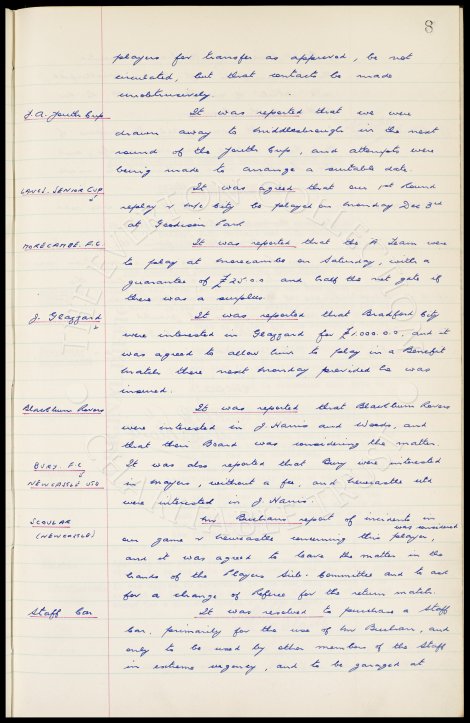 8
players for transfer as approved, be not
circulated, but that contacts be made
unobtrusively.
F.A. Youth Cup It was reported that we were
drawn away to Middlesbrough in the next
round of the Youth Cup, and attempts were
being made to arrange a suitable date.
LANCS. SENIOR CUP It was agreed that our 1st Round
replay v M/c City be played on Monday Dec 3rd
at Goodison Park.
MORECAMBE. F.C. It was reported that the A Team were
to play at Morecambe on Saturday, with a
guarantee of £25.0.0 and half the net gate if
there was a surplus.
J. Glazzard It was reported that Bradford City
were interested in Glazzard for £1,000.0.0, and it
was agreed to allow him to play in a Benefit
Match there next Monday provided he was
insured.
Blackburn Rovers It was reported that Blackburn Rovers
were interested in J Harris and Woods, and
that their Board was considering the matter.
BURY. F.C. It was also reported that Bury were interested
NEWCASTLE UTD in Mayers, without a fee, and Newcastle Utd
were interested in J Harris.
SCOULAR Mr Buchan's report of incidents in
(NEWCASTLE) our game v Newcastle concerning this player, was considered
and it was agreed to leave the matter in the
hands of the Players Sub-Committee and to ask
for a change of Referee for the return match.
Staff Car It was resolved to purchase a Staff
Car, primarily for the use of Mr Buchan, and
only to be used by other members of the Staff
in extreme urgency, and to be garaged at